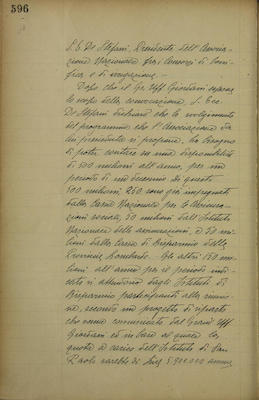 596
S. E. De Stefani, Presidente dell'Associa-
zione Nazionale fra i Consorzi di boni-
fica e di irrigazione. -
Dopo che il Gr. Uff. Giordani espone
lo scopo della convocazione, S. Ecc.
De Stefani dichiara che lo svolgimento
del programma che l'Associazione da
lui presieduta si propone, ha bisogno
di poter contare su una disponibilità
di 500 milioni all'anno, per un
periodo di un decennio. Di questi
500 milioni, 250 sono già impegnati
dalla Cassa Nazionale per le Assicura-
zioni sociali, 50 milioni dall'Istituto
Nazionale delle assicurazioni, e 50 mi-
lioni dalla Cassa di Risparmio delle
Provincie Lombarde. Gli altri 150 mi-
lioni all'anno per il periodo indi-
cato si attendono dagli Istituti di
Risparmio partecipanti alla riunio-
ne, secondo un progetto di riparto
che viene comunicato dal Grand'Uff.
Giordani ed in base al quale la
quota a carico dell'Istituto di San
Paolo sarebbe di Lire 5.900.000 annue